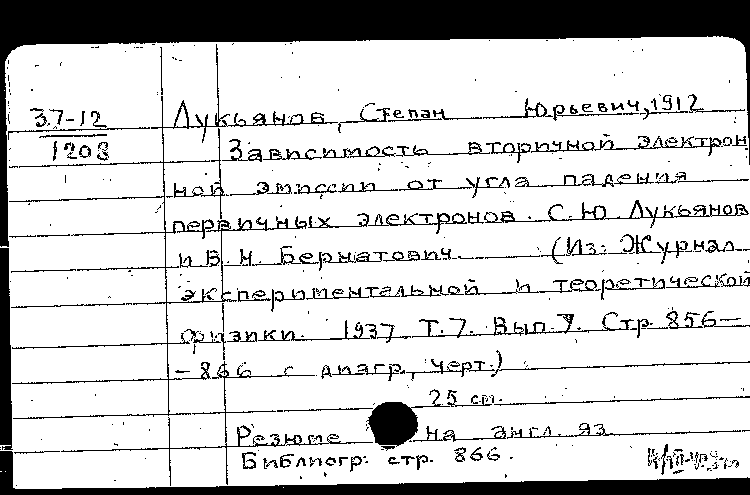 37-12
1208
Лукьянов, Степан Юрьевич, 1912
Зависимость вторичной электрон
ной эмиссии от угла падения
первичных электронов. С.Ю Лукьянов
и В.Н. Бернатович. (Из: Журнал
экспериментальной и теоретической
физики. 1937 Т.7. Вып.7. Стр. 856—
—866 с диагр., черт.)
25 см.
Резюме на англ. яз
Библиогр: стр. 866.